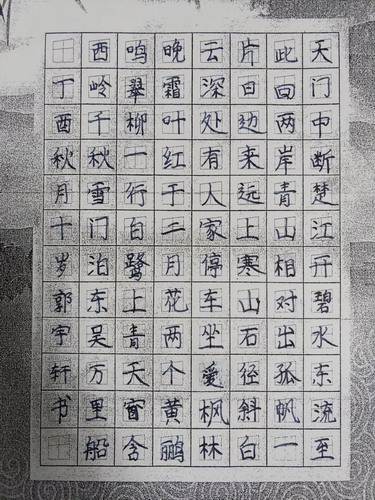 天门中断楚江开碧水东流至
此回两岸青山相对出孤帆一
片日边来远上寒山石径斜白
云深处有人家停车坐愛枫林
晚霜叶红于二月花两个黄鹂
鸣翠柳一行白鹭上青天窗含
西岭千秋雪门泊东吴万里船
丁酉秋月十岁郭宇轩书